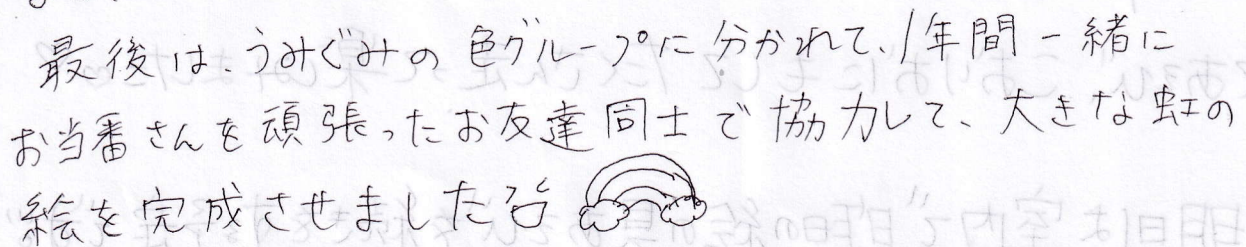 最後は、うみぐみの色グループに分かれて、1年間一緒に
お当番さんを頑張ったお友達同士で協力して、大きな虹の
絵を完成させました